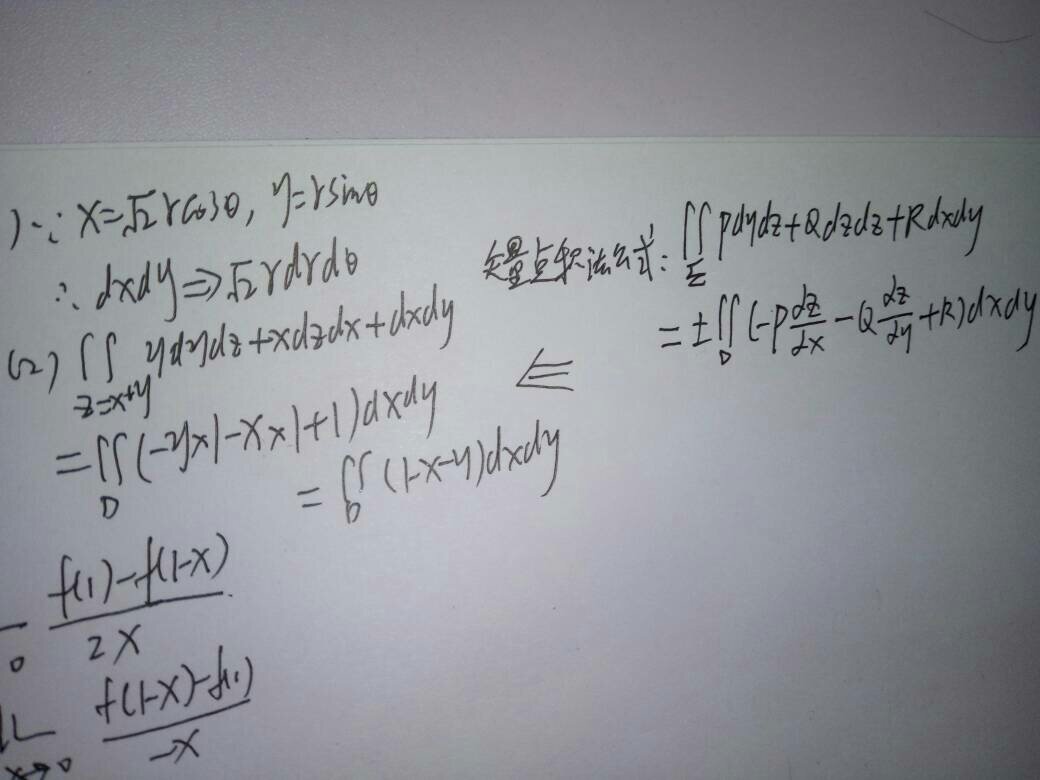 ) ∵ x=√2 rcosθ, y=rsinθ
∴ dxdy⇒√2 rdrdθ
(2) ∬ ydydz+xdzdx+dxdy
z=x+y
=∬(-y×1-x×1+1)dxdy
D
=∬(1-x-y)dxdy
D
矢量点积法公式: ∬Pdydz+Qdzdz+Rdxdy
Σ
=±∬(-P dz/dx -Q dz/dy +R)dxdy
D
⇐
f(1)-f(1-x)
0 2x
f(1-x)-f(1)
x→0 -x